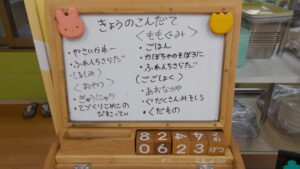 きょうのこんだて
・やさいカレー
・ふれんちさらだ
(くるみ)
〈おやつ〉
・ぎゅうにゅう
・てづくりこめこの
〈ももぐみ〉
・ごはん
・かぼちゃのそぼろに
・ふれんちさらだ
(ごごしょく)
・あおながゆ
・ぐだくさんみそしる
・くだもの